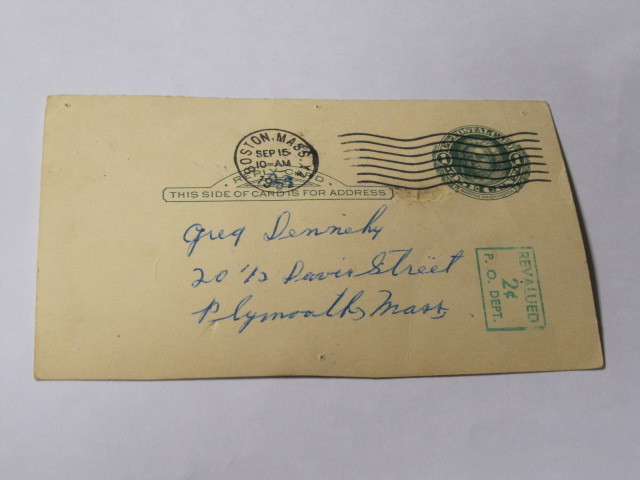 BOSTON, MASS.
SEP 15
10-AM
THIS SIDE OF CARD IS FOR ADDRESS
Greg Dennehy
20½ Davis Street
Plymouth Mass.
REVALUED
2¢
P. O. DEPT.